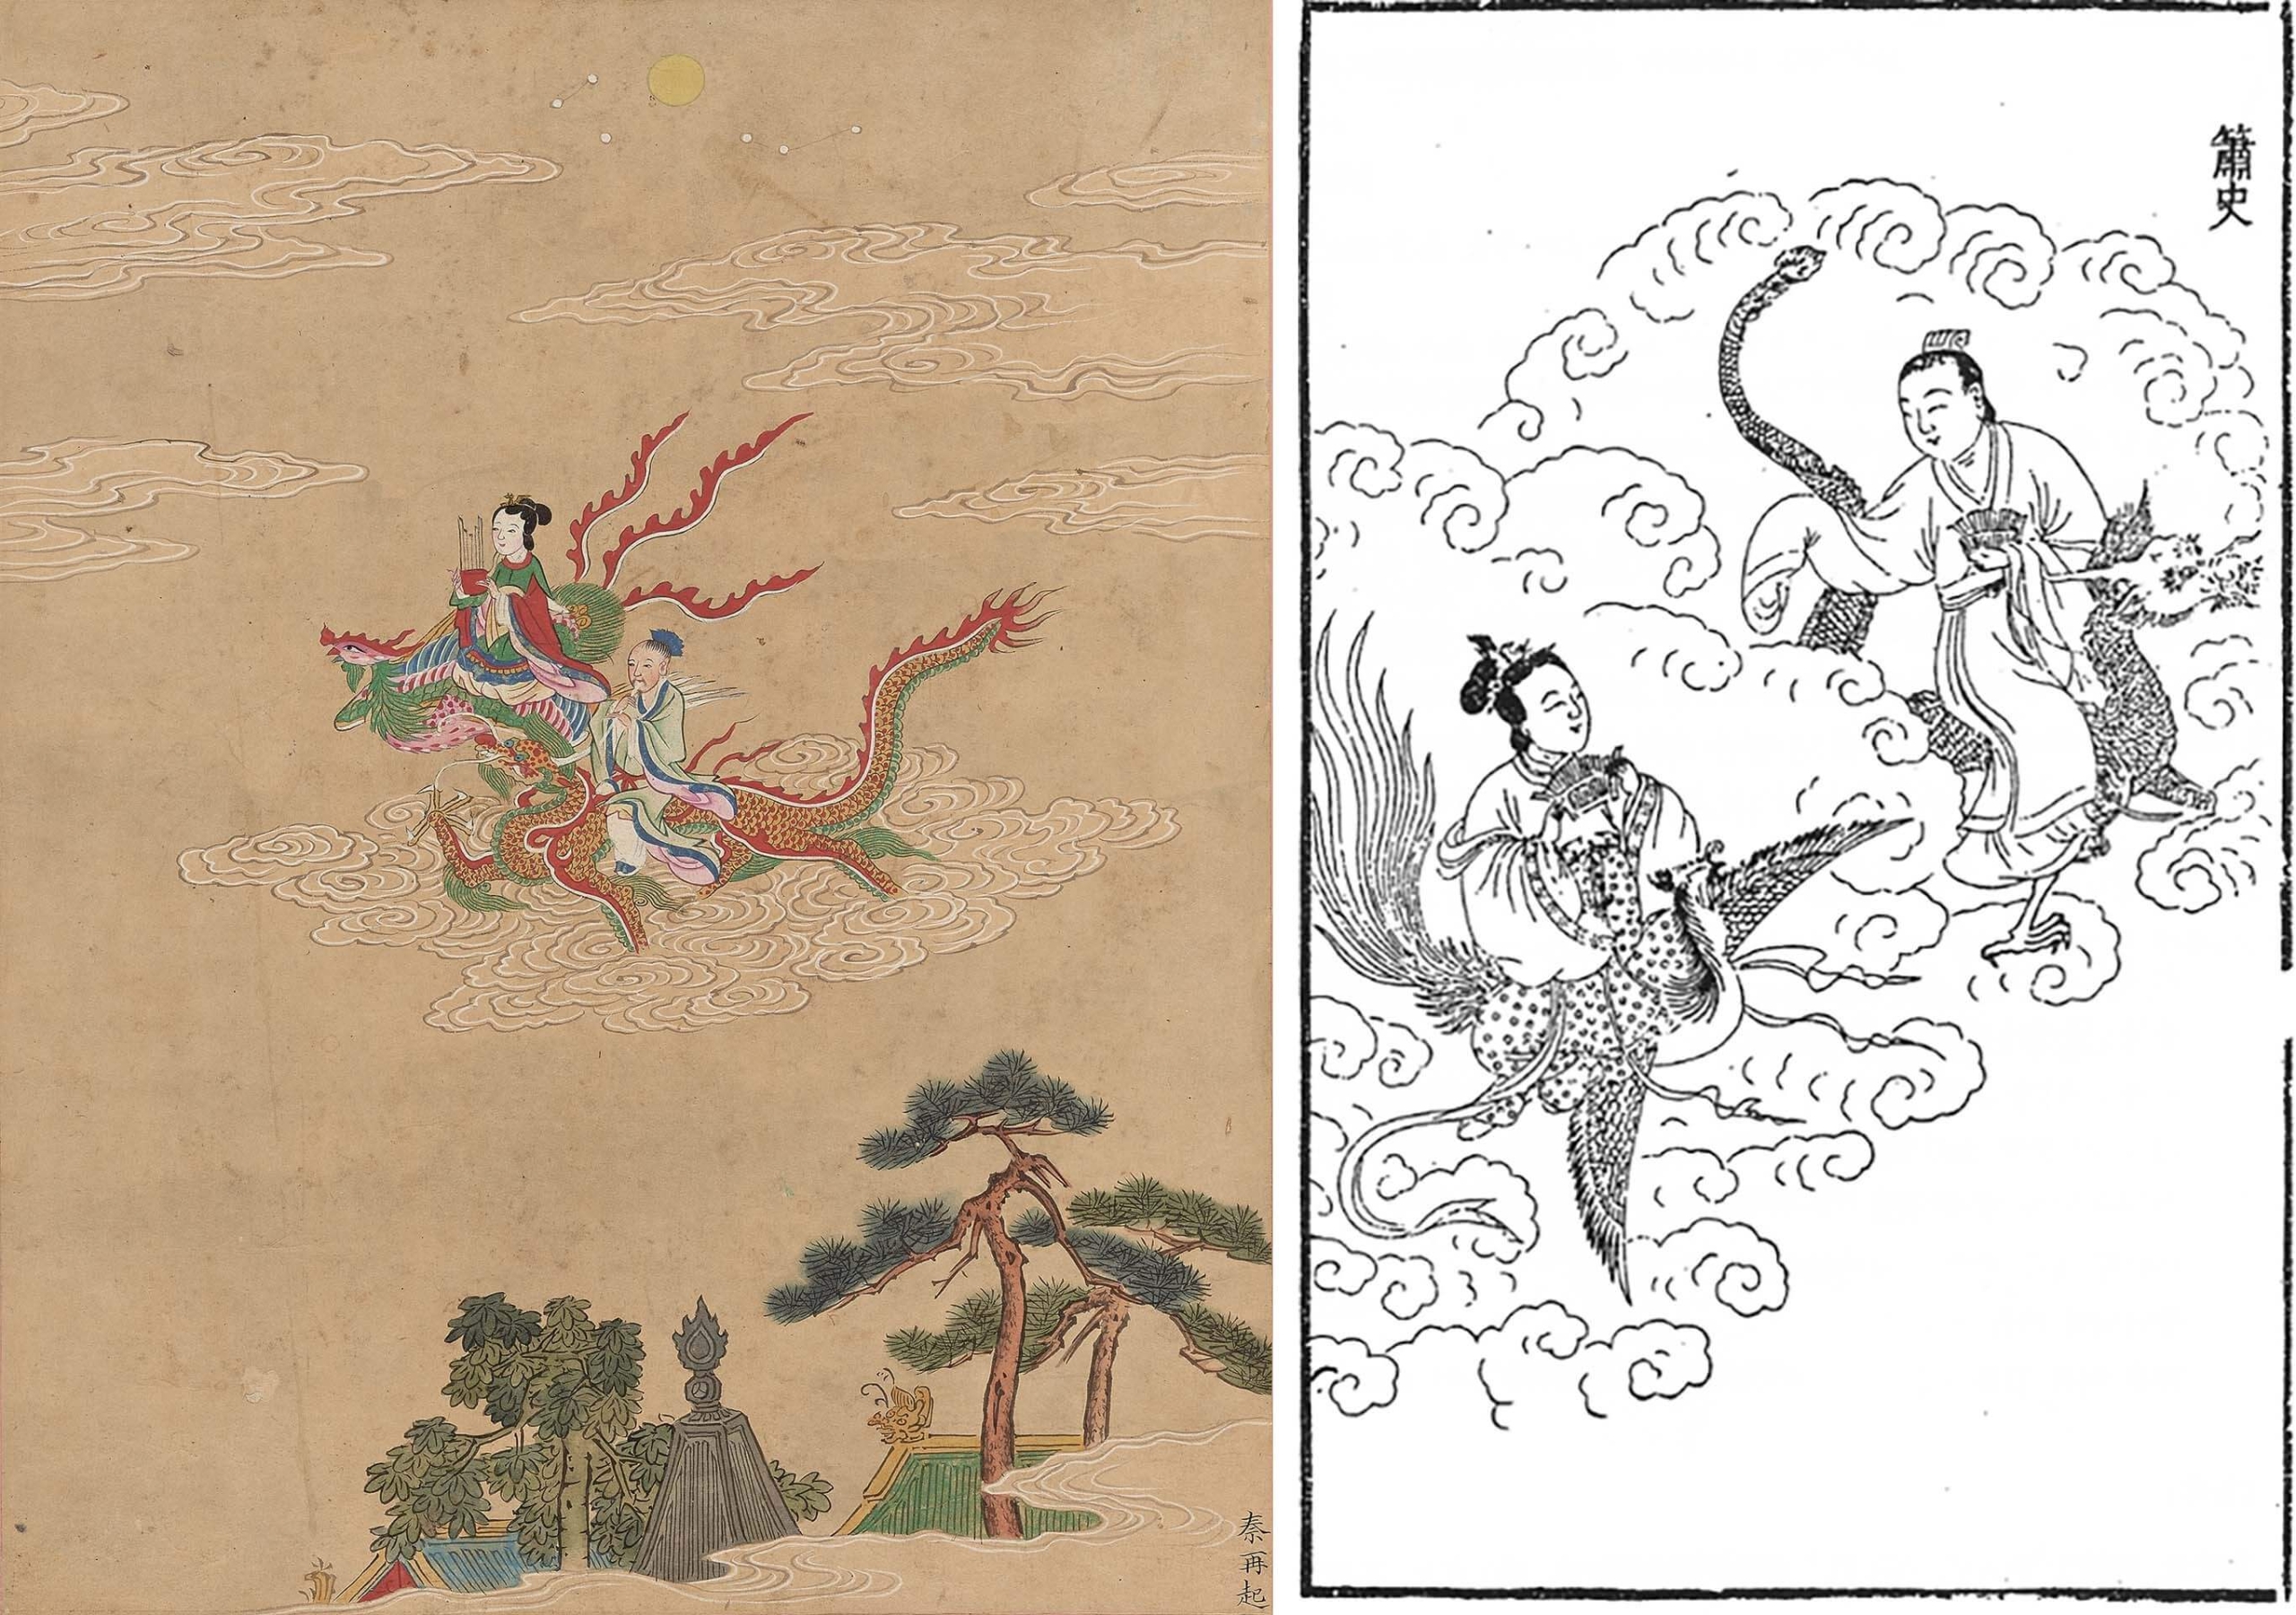 秦再起
簫史